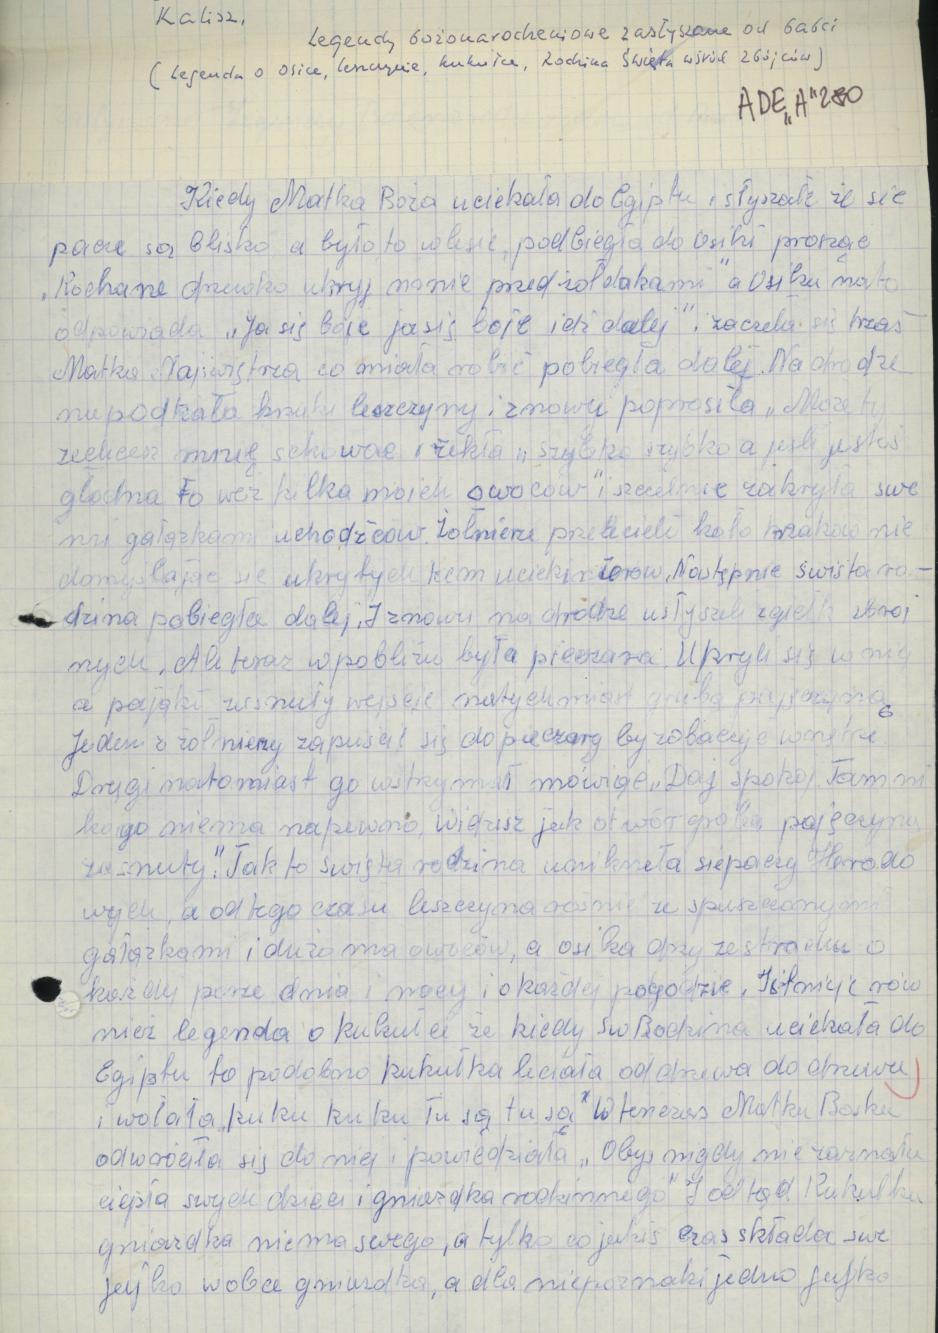 Kalisz.
Legendy bożonarodzeniowe zasłyszane od babci
(Legenda o osice, leszczynie, kukułce, Rodzina Święta wśród zbójców)
ADE „A" 280
Kiedy Matka Boża uciekała do Egiptu i słyszała że sie
pacze są blisko a było to w lesie, podbiegła do Osiki prosząc
„Kochane drzewko ukryj mnie przed żołdakami" a Osika na to
odpowiada „Ja się boje ja się boje idź dalej" i zaczeła się trząś
Matka Najświętsza co miała robić pobiegła dalej. Na drodze
napodkała krzaki leszczyny i znowu poprosiła „Może ty
zechcesz mnię schować i rzekła „szybko szybko a jeśli jesteś
głodna to weź kilka moich owoców" i szczelnie zakryła swe
mi gałązkami uchodźców. Żołnierze przelecieli koło krzaków nie
domyślając sie ukrytych tam uciekinierów. Następnie święta ro-
dzina pobiegła dalej. I znowu na drodze usłyszeli zgiełk zbroj
nych. Ale teraz w pobliżu była pieczara. Ukryli się w niej
a pająki zasnuły wejście natychmiast grubą pajęczyną
Jeden z żołnierzy zapuścił się do pieczary by zobaczyć wnętrze
Drugi natomiast go wstrzymał mówiąc „Daj spokój. Tam ni
kogo niema napewno, widzisz jak otwór grubą pajęczyną
zasnuty". Tak to święta rodzina uniknęła siepaczy Herodo
wych, a od tego czasu leszczyna rośnie ze spuszczonymi
gałązkami i dużo ma owoców, a osika drży ze strachu o
każdy porze dnia i nocy i o każdej pogodzie. Istnieje rów
nież legenda o kukułce że kiedy Św Rodzina uciekała do
Egiptu to podobno kukułka leciała od drzewa do drzewa
i wołała „kuku kuku tu są tu są" Wtenczas Matka Boska
odwróciła się do niej i powiedziała „Obyś nigdy nie zaznała
ciepła swych dzieci i gniazdka rodzinnego" I odtąd Kukułka
gniazdka niema swego, a tylko co jakiś czas składa swe
jejko w obce gniazdka, a dla niepoznaki jedno jejko